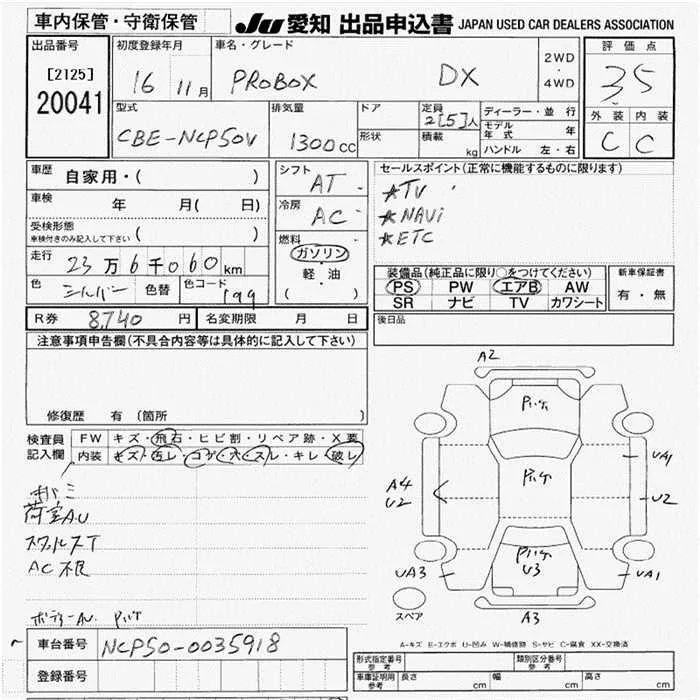 車内保管・守衛保管
JU 愛知 出品申込書 JAPAN USED CAR DEALERS ASSOCIATION
出品番号
[2125]
20041
初度登録年月
16 11月
車名・グレード
PROBOX DX
2WD
・
4WD
評価点
3.5
外装 内装
C C
型式
CBE-NCP50V
排気量
1300cc
ドア
形状
定員
2[5]人
積載
kg
ディーラー・並行
モデル年式 年
ハンドル 左・右
車歴 自家用・( )
車検 年 月( 日)
受検形態
車検付きのみ記入して下さい ( )
走行 23万6千060km
色 シルバー 色替 色コード 199
シフト
AT
冷房
AC
燃料
ガソリン
軽・油
( )
セールスポイント(正常に機能するものに限ります)
☆TV
☆NAVi
☆ETC
装備品(純正品に限り○をつけてください)
PS PW エアB AW
SR ナビ TV カワシート
新車保証書
有・無
R券 8,740円 名変期限 月 日
後日品
注意事項申告欄(不具合内容等は具体的に記入して下さい)
修復歴 有 (箇所 )
検査員
記入欄
FW キズ・飛石・ヒビ割・リペア跡・X要
内装 キズ・汚レ・コゲ・穴・スレ・キレ・破レ
荷室A.U
AC不良
ボディーAU
A2
UA1
A4
U2
U2
U3
UA3
UA1
A3
スペア
A-キズ E-エクボ U-凹み W-補修跡 S-サビ C-腐食 XX-交換済
車台番号 NCP50-0035918
登録番号
形式指定番号
参考
類別区分番号
参考
車庫証明用
参考
長さ cm 幅 cm 高さ cm